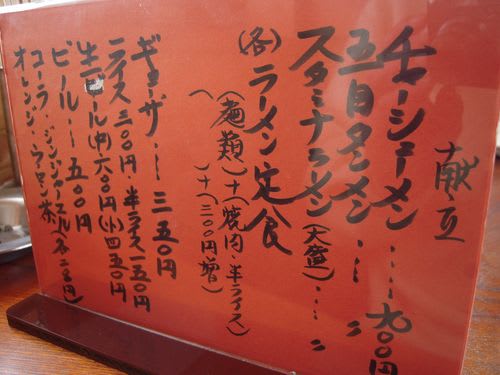 献立
チャーシューメン……九〇〇円
五目タンメン…〃
スタミナラーメン(大盛)…〃
(各)ラーメン定食
(麺類)+(焼肉・半ライス)
( )+(三〇〇円増)
ギョーザ…三五〇円
ライス二〇〇円・半ライス一五〇円
生ビール(中)六〇〇円(小)四五〇円
ビール…五〇〇円
コーラ・ジンジャエール(各二五〇円)
オレンジ・ウーロン茶